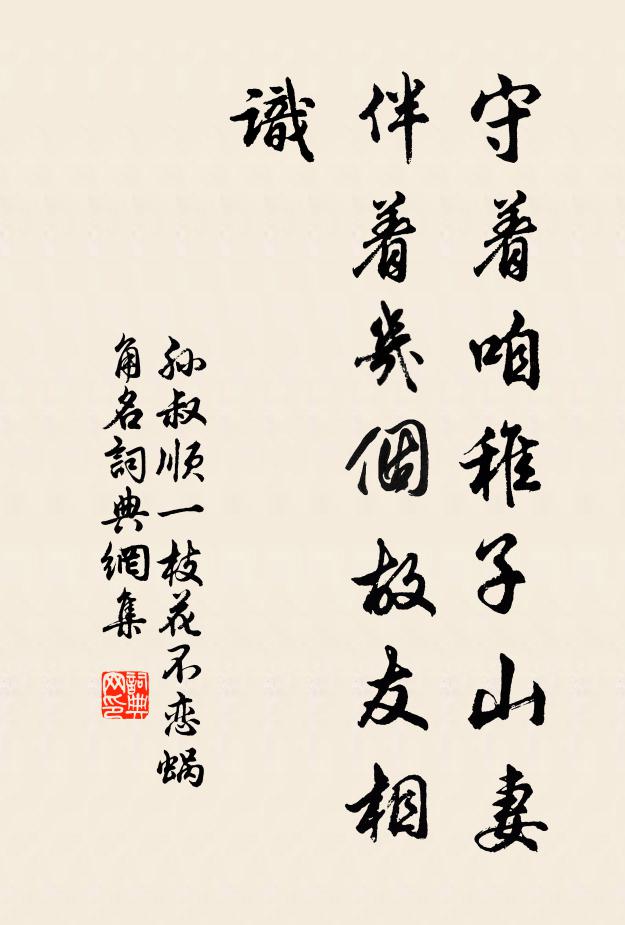 守着咱稚子山妻
伴着幾個故友相
識
孙叔顺一枝花不恋蜗
角名詞典網集
詞典
网印